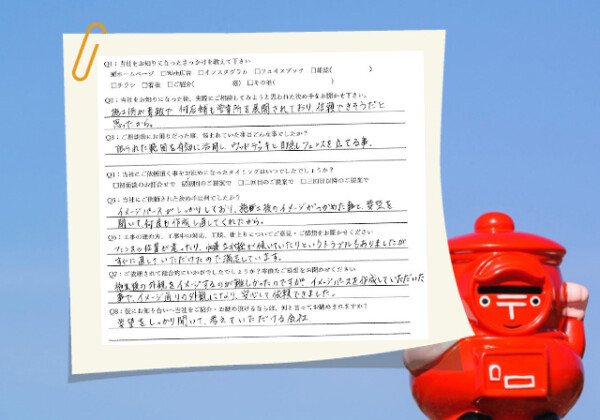 Q1：当社をお知りになったきっかけを教えて下さい
☑ホームページ □Web広告 □インスタグラム □フェイスブック □雑誌(　　　)
□チラシ □看板 □ご紹介(　　　様) □その他(　　　)
Q2：当社をお知りになった後、実際にご相談してみようと思われた決め手をお聞かせ下さい。
施工例が豊富で 何店舗も営業所を展開されており、信頼できそうだと
思ったから。
Q3：ご相談前にお困りだった事、悩まれていた事はどんな事でしたか？
限られた範囲を有効に活用し、ウッドデッキと目隠しフェンスを立てる事。
Q4：当社にご依頼頂く事をお決めになったタイミングはいつでしたでしょうか？
□初面談のお打合せで ☑初回のご提案で □二回目のご提案で □三回目以降のご提案で
Q5：当社にご依頼された決め手は何でしたか？
イメージパースがしっかりしており、施工後のイメージがつかめた事と、要望を
聞いて何度も作成し直してくれたから。
Q6：工事の進め方、工事中の対応、工期、仕上りについてご意見・ご感想をお聞かせください
フェンスの位置が違ったり、が傾いていたりというトラブルもありましたが
すぐに直していただけたので満足しています。
Q7：ご依頼されて総合的にいかがでしたでしょうか？率直なご感想をお聞かせください
施工後の外観をイメージするのが難しかったのですが、イメージパースを作成していただいた
事で、イメージ通りの外観になり、安心して依頼できました。
Q8：仮にお知り合いへ当社をご紹介・お勧め頂けるならば、何と言ってお勧めされますか？
要望をしっかり聞いて、考えていただける会社